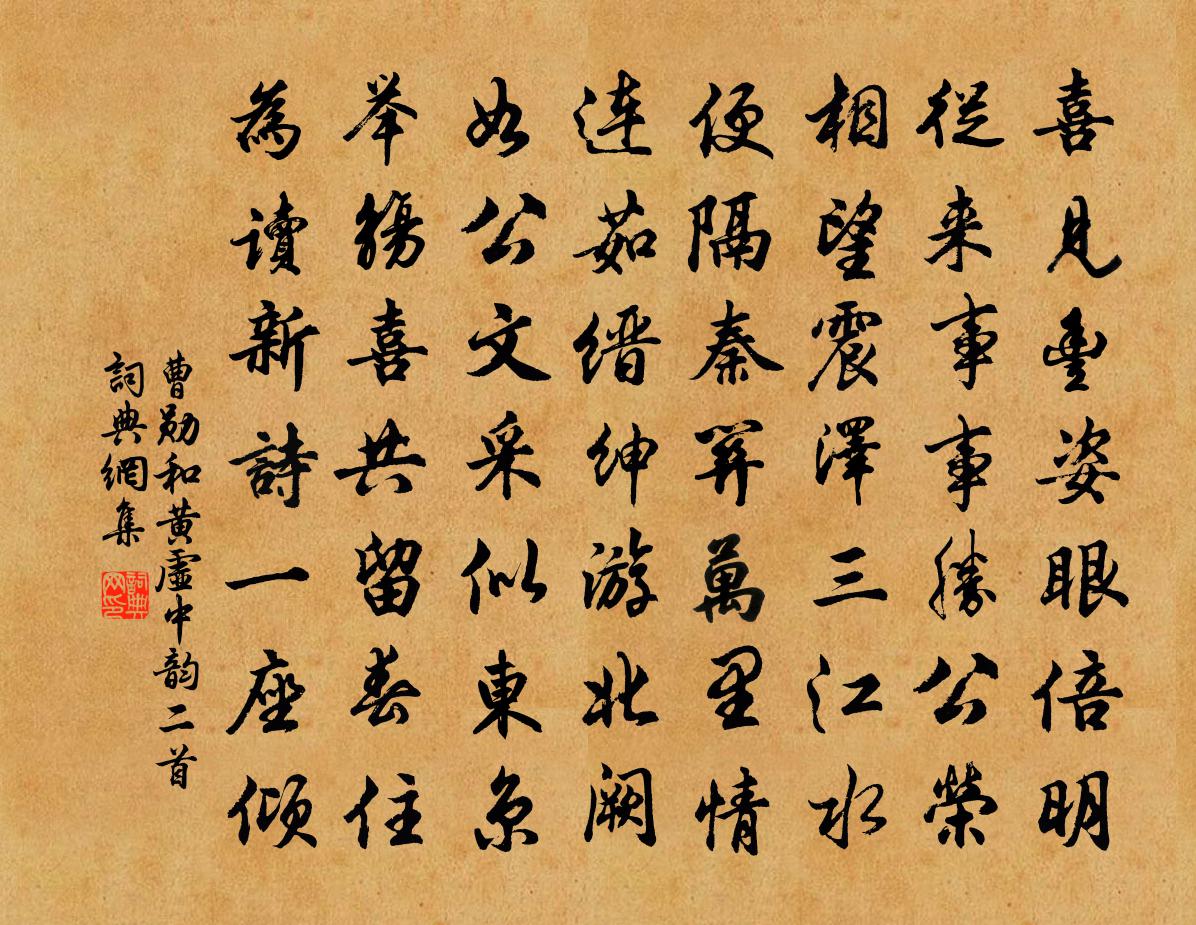 喜見豐姿眼倍明
従来事事勝公榮
相望震澤三江水
便隔秦關萬里情
連茹縉紳游北闕
如公文采似東京
举觴喜共留春住
為讀新詩一座傾
曹勛和黄虛中韵二首
詞典網集
詞典网印